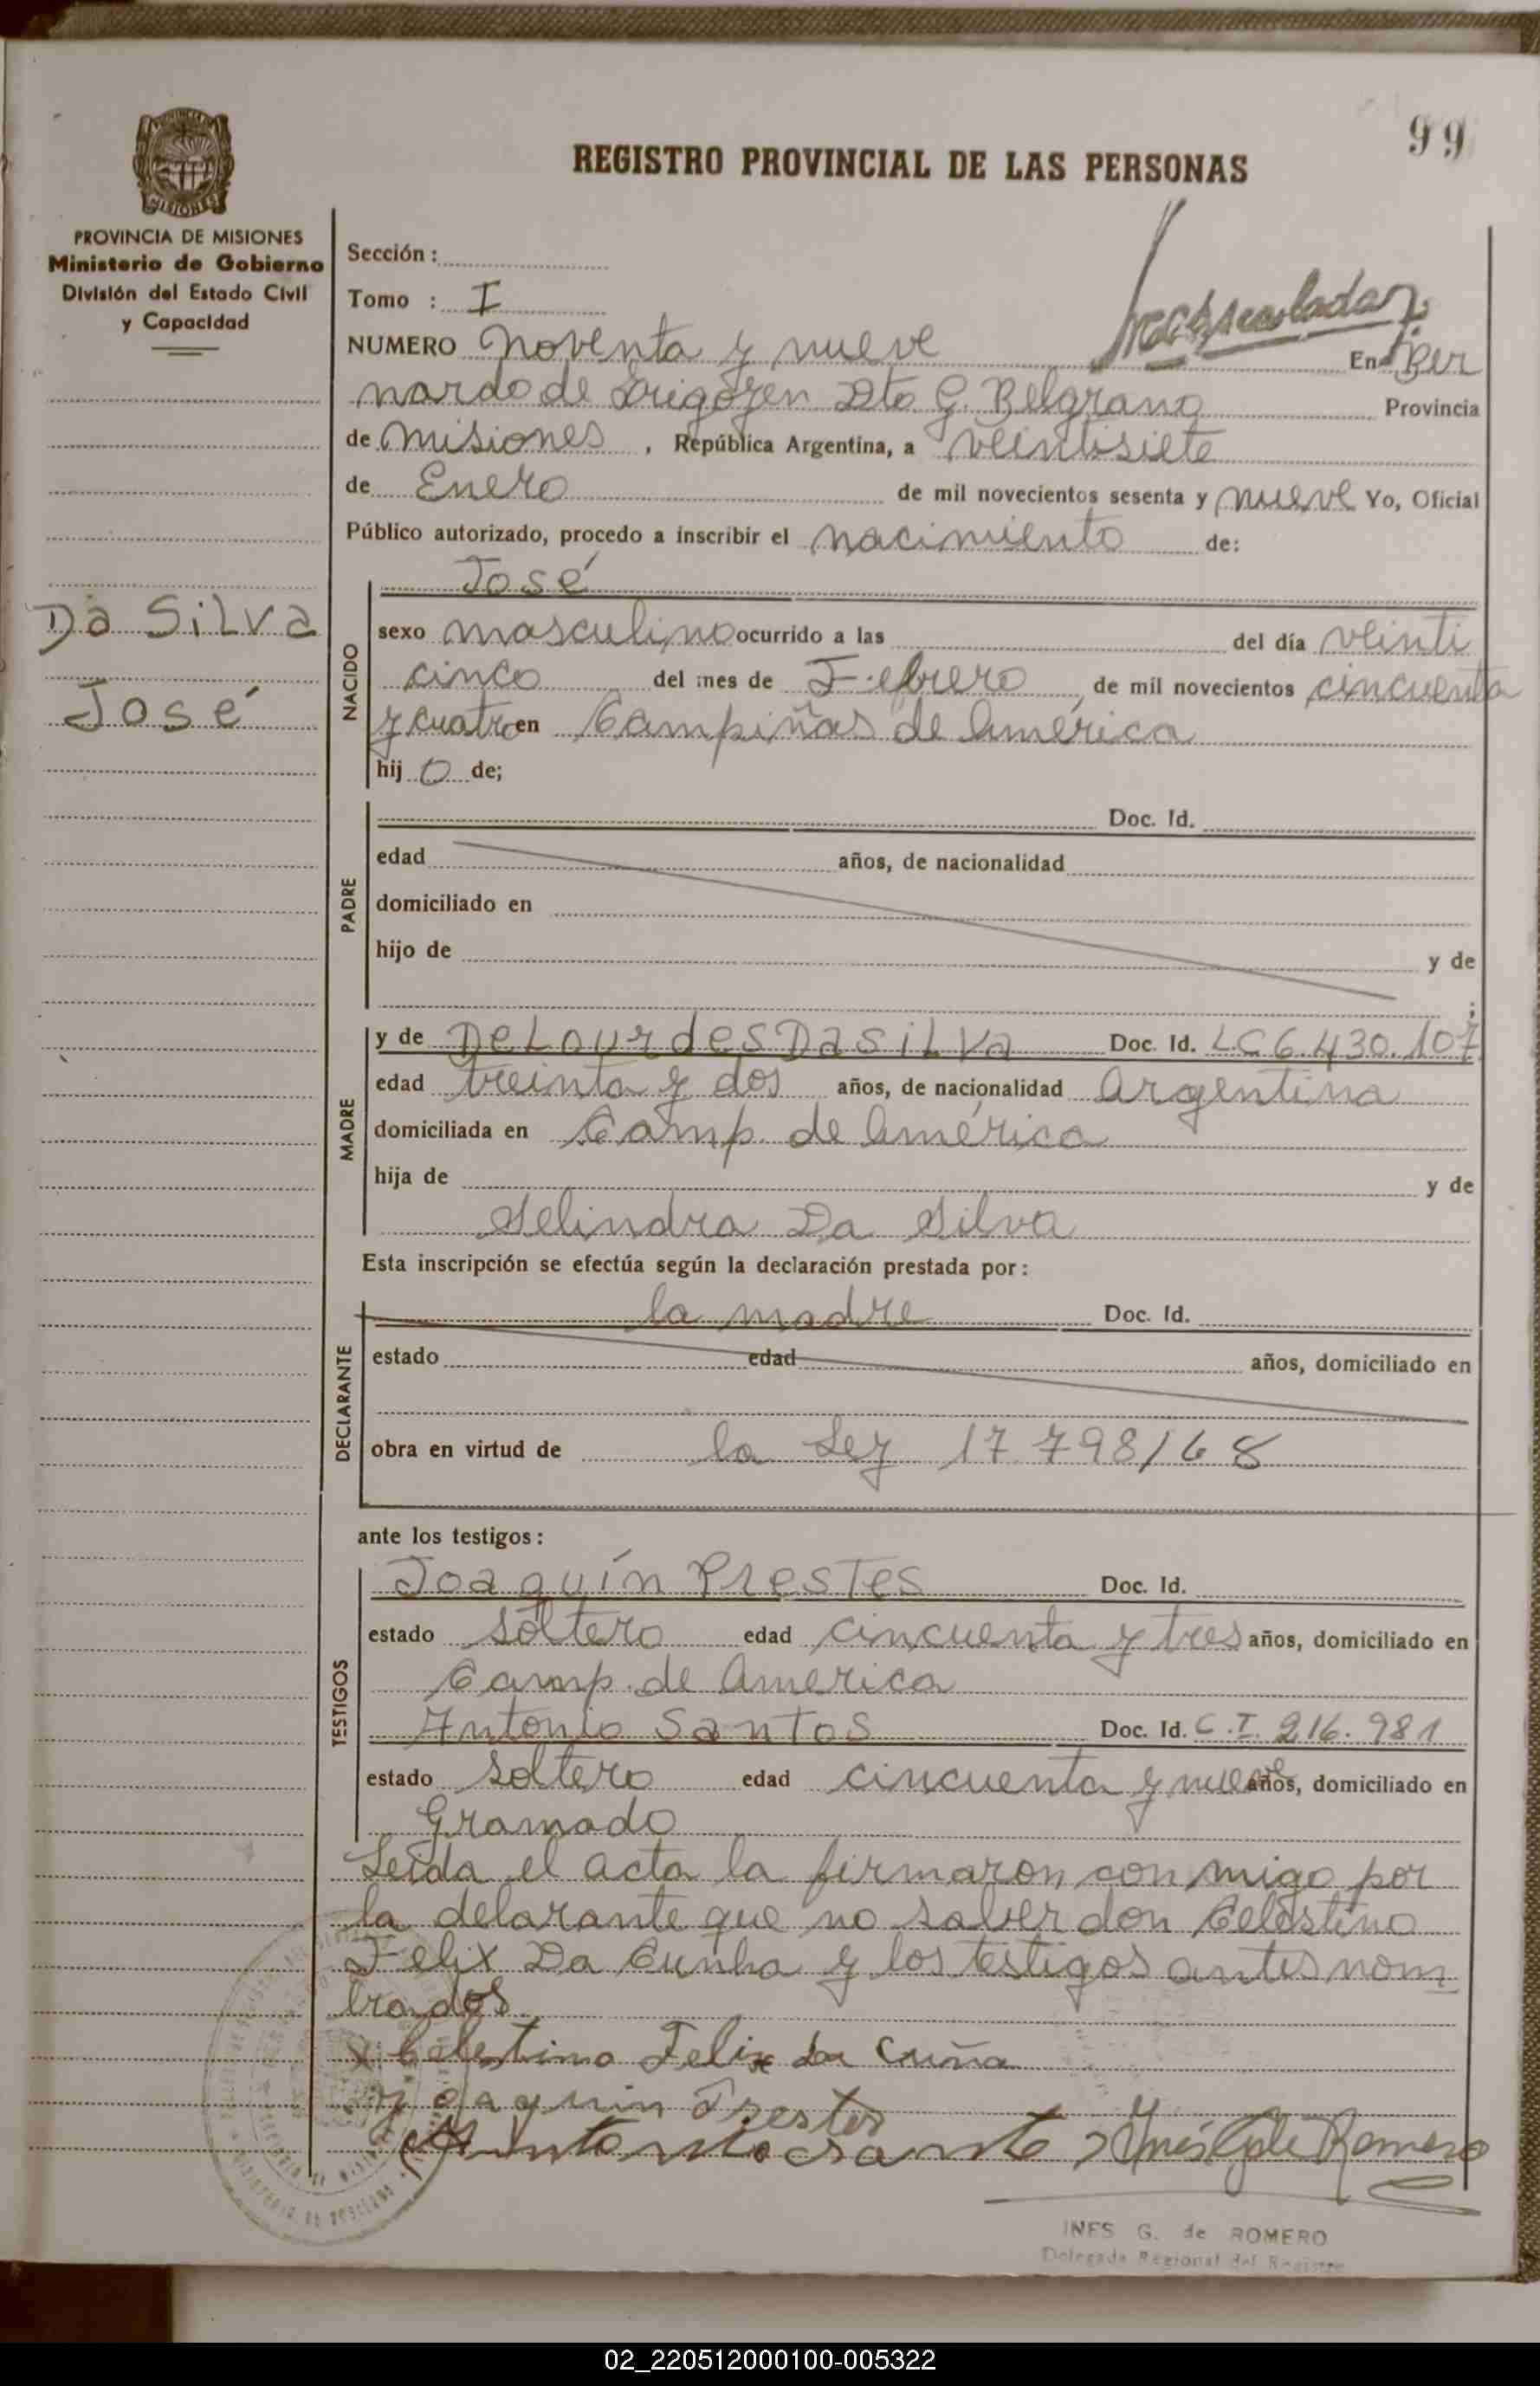 99
REGISTRO PROVINCIAL DE LAS PERSONAS
PROVINCIA DE MISIONES
Ministerio de Gobierno
División del Estado Civil
y Capacidad
Sección :
Tomo : I
NUMERO Noventa y nueve En Ber
nardo de Irigoyen Dto G. Belgrano Provincia
de Misiones, República Argentina, a veintisiete
de Enero de mil novecientos sesenta y nueve Yo, Oficial
Público autorizado, procedo a inscribir el nacimiento de:
Da Silva
José
NACIDO
José
sexo masculino ocurrido a las del día veinti
cinco del mes de Febrero de mil novecientos cincuenta
y cuatro en Campiñas de América
hij o de;
PADRE
Doc. Id.
edad años, de nacionalidad
domiciliado en
hijo de y de
;
MADRE
y de De Lourdes Da Silva Doc. Id. LC 6.430.107
edad treinta y dos años, de nacionalidad Argentina
domiciliada en Camp. de América
hija de y de
Selindra Da Silva
Esta inscripción se efectúa según la declaración prestada por:
DECLARANTE
la madre Doc. Id.
estado edad años, domiciliado en
obra en virtud de la Ley 17.798/68
ante los testigos:
TESTIGOS
Joaquín Prestes Doc. Id.
estado soltero edad cincuenta y tres años, domiciliado en
Camp. de America
Antonio Santos Doc. Id. C.I. 216.981
estado soltero edad cincuenta y nueve años, domiciliado en
Gramado
Leida el acta la firmaron conmigo por
la delarante que no saber don Celestino
Felix Da Cunha y los testigos antes nom
brados
x Celestino Felix da Cuña
Joaquin Prestes
Antonio santo Inés G de Romero
INES G. de ROMERO
Delegada Regional del Registro
02_220512000100-005322